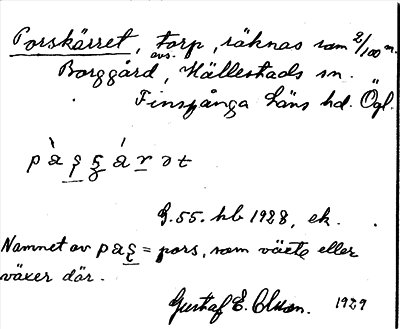 Porskärret, torp, räknas som 2/100 m.
avs.
Borggård, Hällestads sn.
Finspånga läns hd. Ögl.
pàʂʂárət
G.55. hb 1928, ek.
Namnet av paʂ = pors, som växte eller
växer där.
Gustaf E. Olsson. 1929